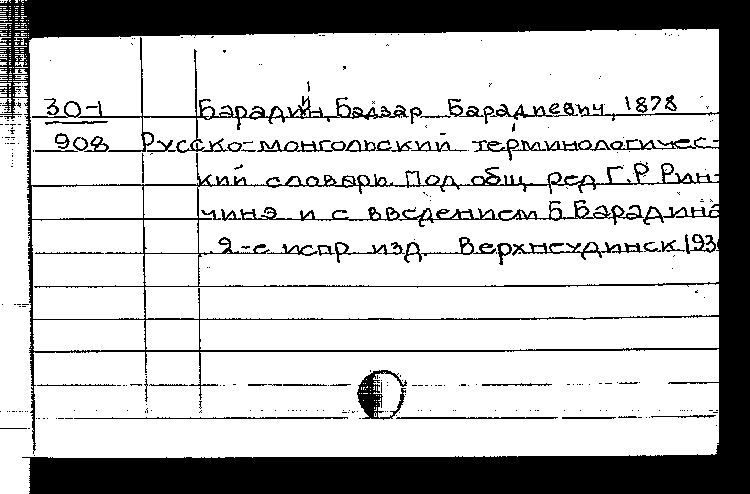 30-1 Барадийн, Бадзар Барадиевич, 1878
908 Русско-монгольский терминологичес-
кий словарь. Под общ. ред. Г.Р. Рин-
чинэ и с введением Б. Барадина
2-е испр. изд. Верхнеудинск, 193